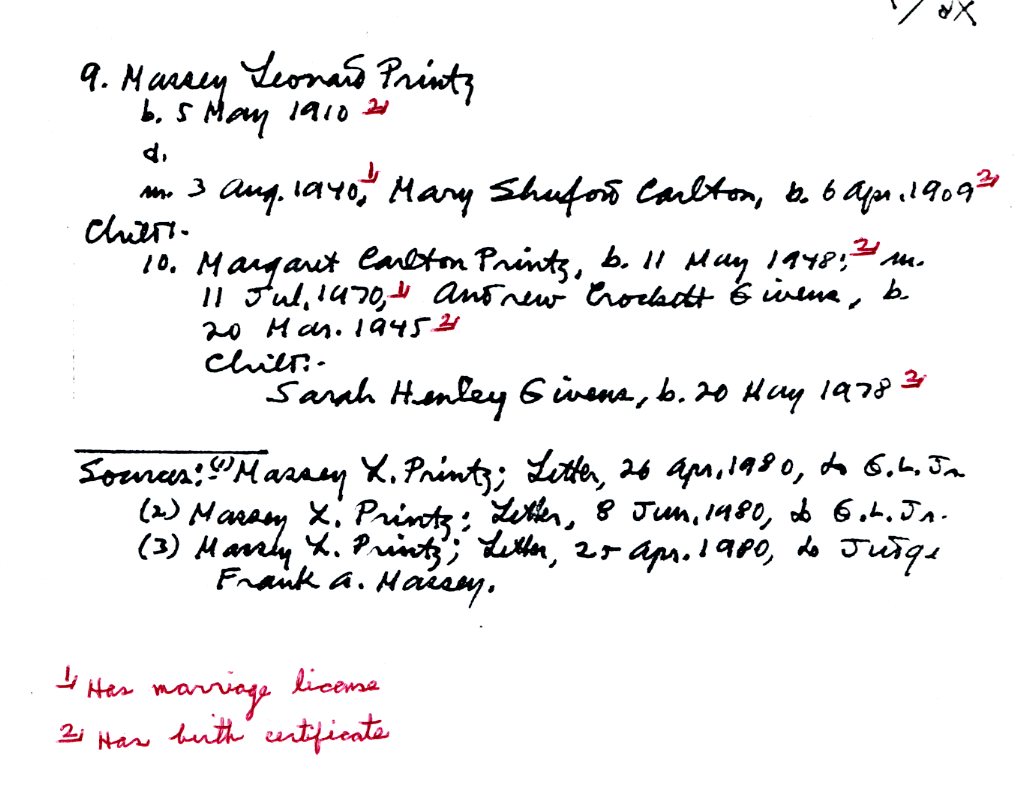 9. Massey Leonard Printz
b. 5 May 1910 2/
d.
m. 3 Aug. 1940, 1/ Mary Shuford Carlton, b. 6 Apr. 1909 2/
Child:-
10. Margaret Carlton Printz, b. 11 May 1948; 2/ m.
11 Jul, 1970, 1/ Andrew Crockett Givens, b.
20 Mar. 1945 2/
Child:-
Sarah Henley Givens, b. 20 May 1978 2/
Sources: (1) Massey L. Printz; Letter, 26 Apr, 1980, to G.L. Jr
(2) Massey L. Printz; Letter, 8 Jun, 1980, to G.L. Jr.
(3) Massey L. Printz; Letter, 25 Apr. 1980, to Judge
Frank A. Massey.
1/ Has marriage license
2/ Has birth certificate